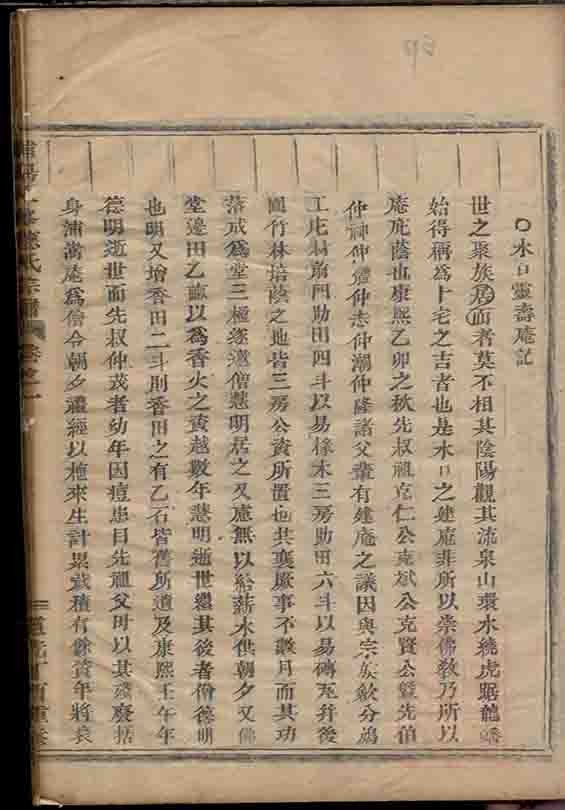 〇水口靈壽庵記
世之聚族居而者莫不相其陰陽觀其流泉山環水繞虎踞龍蟠
始得稱爲卜宅之吉者也是水口之建庵非所以崇佛敎乃所以
庵庇蔭也康熙乙卯之秋先叔祖克仁公克斌公克賢公曁先伯
仲神仲禮仲志仲潮仲隆諸父輩有建庵之議因與宗族歛分鳩
工庀材前門助田四斗以易椽木三房助田六斗以易磚瓦幷後
園竹林培蔭之地皆三房公資所置也共襄厥事不數月而其功
落成爲堂三楹遂邀僧慧明居之又慮無以給薪水供朝夕又佛
堂邊田乙畝以爲香火之資越數年慧明逝世繼其後者僧德明
也明又增香田二斗則香田之有乙石皆舊所遺及康熙壬午年
德明逝世而先叔仲茂者幼年因痘患目先祖父母以其殘廢括
身浦滿庵爲僧令朝夕禮經以施來生計累歲積有餘資年將衰
氏宗譜 卷之一